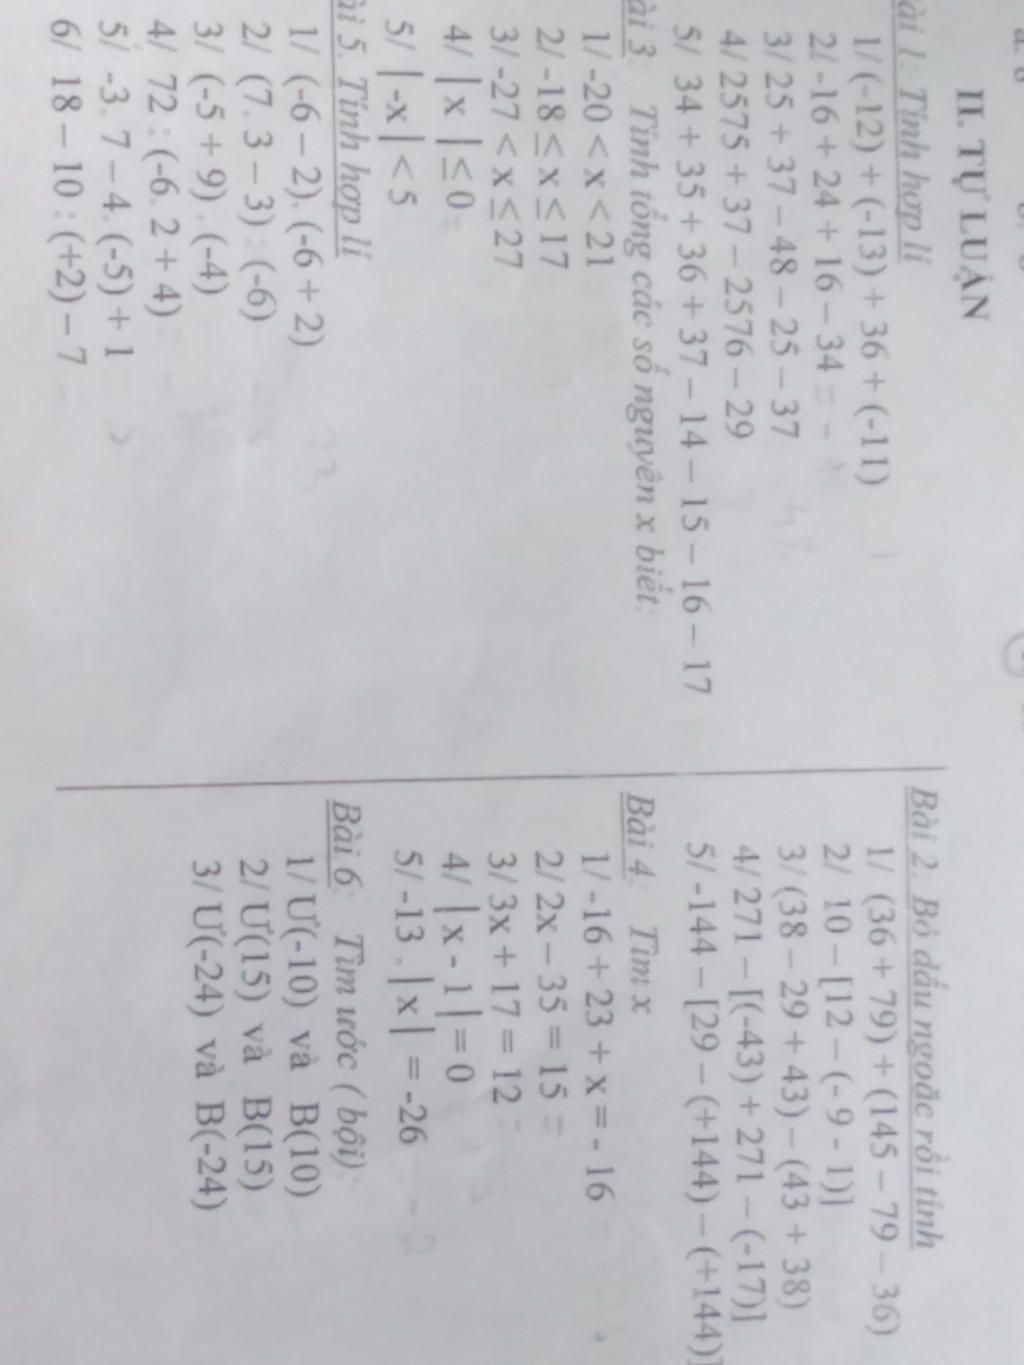 II. TỰ LUẬN
Bài 1: Tính hợp lí
1/ (-12) + (-13) + 36 + (-11)
2/ -16 + 24 + 16 – 34
3/ 25 + 37 – 48 – 25 – 37
4/ 2575 + 37 – 2576 – 29
5/ 34 + 35 + 36 + 37 – 14 – 15 – 16 – 17
Bài 3: Tính tổng các số nguyên x biết:
1/ -20 < x < 21
2/ -18 ≤ x ≤ 17
3/ -27 < x ≤ 27
4/ | x | ≤ 0
5/ | -x | < 5
Bài 5. Tính hợp lí
1/ (-6 – 2). (-6 + 2)
2/ (7. 3 – 3) : (-6)
3/ (-5 + 9) . (-4)
4/ 72 : (-6. 2 + 4)
5/ -3. 7 – 4. (-5) + 1
6/ 18 – 10 : (+2) – 7
Bài 2: Bỏ dấu ngoặc rồi tính
1/ (36 + 79) + (145 – 79 – 36)
2/ 10 – [12 – (- 9 - 1)]
3/ (38 – 29 + 43) – (43 + 38)
4/ 271 – [(-43) + 271 – (-17)]
5/ -144 – [29 – (+144) – (+144)]
Bài 4: Tìm x
1/ -16 + 23 + x = - 16
2/ 2x – 35 = 15
3/ 3x + 17 = 12
4/ | x - 1 | = 0
5/ -13 . | x | = -26
Bài 6: Tìm ước ( bội):
1/ Ư(-10) và B(10)
2/ Ư(15) và B(15)
3/ Ư(-24) và B(-24)